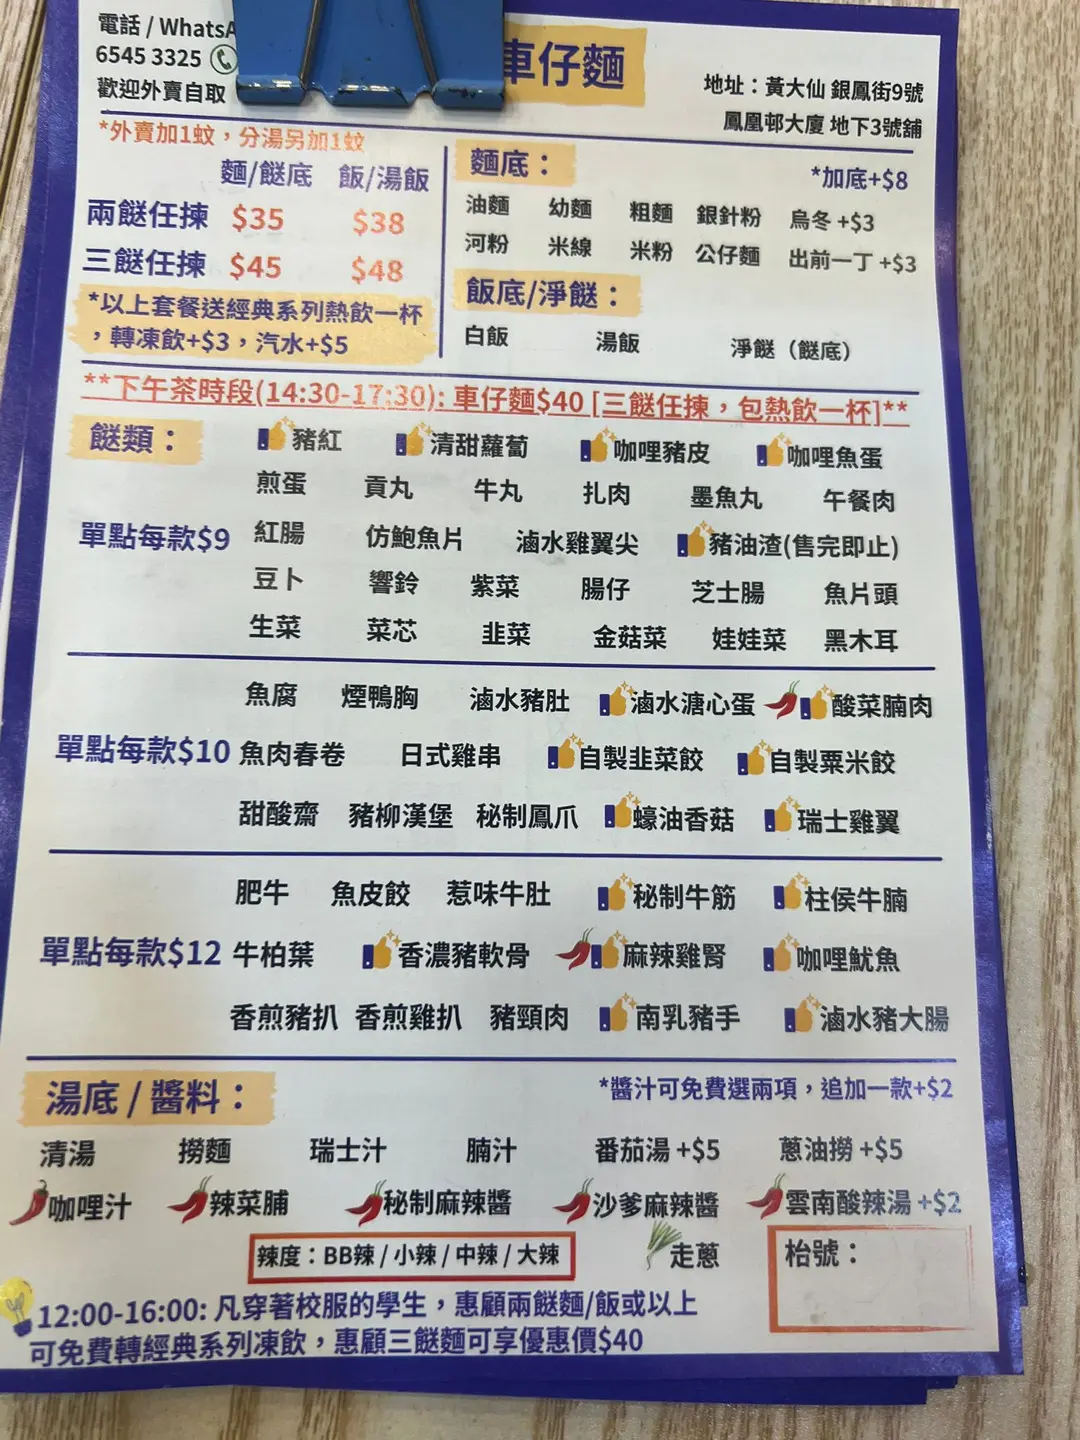 電話 / WhatsA
6545 3325
歡迎外賣自取
車仔麵
地址：黃大仙 銀鳳街9號
鳳凰邨大廈 地下3號舖
*外賣加1蚊，分湯另加1蚊
麵/餸底 飯/湯飯
兩餸任揀 $35 $38
三餸任揀 $45 $48
*以上套餐送經典系列熱飲一杯
，轉凍飲+$3，汽水+$5
麵底： *加底+$8
油麵 幼麵 粗麵 銀針粉 烏冬 +$3
河粉 米線 米粉 公仔麵 出前一丁 +$3
飯底/淨餸：
白飯 湯飯 淨餸（餸底）
**下午茶時段(14:30-17:30): 車仔麵$40 [三餸任揀，包熱飲一杯]**
餸類： 豬紅 清甜蘿蔔 咖哩豬皮 咖哩魚蛋
煎蛋 貢丸 牛丸 扎肉 墨魚丸 午餐肉
單點每款$9 紅腸 仿鮑魚片 滷水雞翼尖 豬油渣(售完即止)
豆卜 響鈴 紫菜 腸仔 芝士腸 魚片頭
生菜 菜芯 韭菜 金菇菜 娃娃菜 黑木耳
魚腐 煙鴨胸 滷水豬肚 滷水溏心蛋 酸菜腩肉
單點每款$10 魚肉春卷 日式雞串 自製韭菜餃 自製粟米餃
甜酸齋 豬柳漢堡 秘制鳳爪 蠔油香菇 瑞士雞翼
肥牛 魚皮餃 惹味牛肚 秘制牛筋 柱侯牛腩
單點每款$12 牛柏葉 香濃豬軟骨 麻辣雞腎 咖哩魷魚
香煎豬扒 香煎雞扒 豬頸肉 南乳豬手 滷水豬大腸
湯底 / 醬料： *醬汁可免費選兩項，追加一款+$2
清湯 撈麵 瑞士汁 腩汁 番茄湯 +$5 蔥油撈 +$5
咖哩汁 辣菜脯 秘制麻辣醬 沙爹麻辣醬 雲南酸辣湯 +$2
辣度：BB辣 / 小辣 / 中辣 / 大辣 走蔥 枱號：
12:00-16:00: 凡穿著校服的學生，惠顧兩餸麵/飯或以上
可免費轉經典系列凍飲，惠顧三餸麵可享優惠價$40